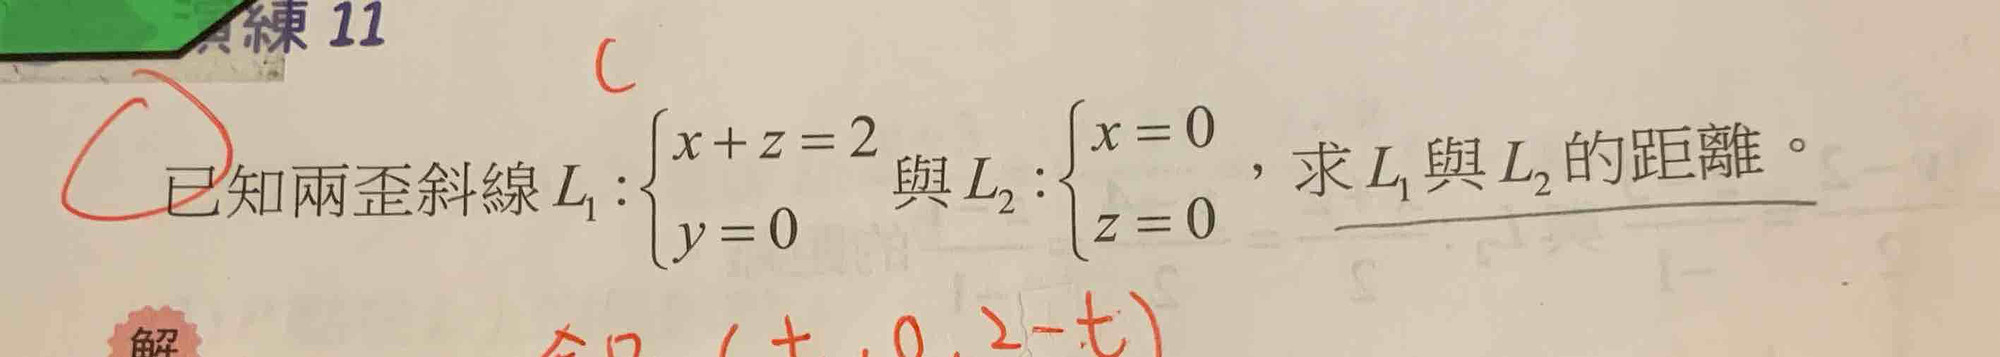 演練 11
已知兩歪斜線 L₁ : { x + z = 2, y = 0 與 L₂ : { x = 0, z = 0 ，求 L₁ 與 L₂ 的距離。
解
(t, 0, 2-t)